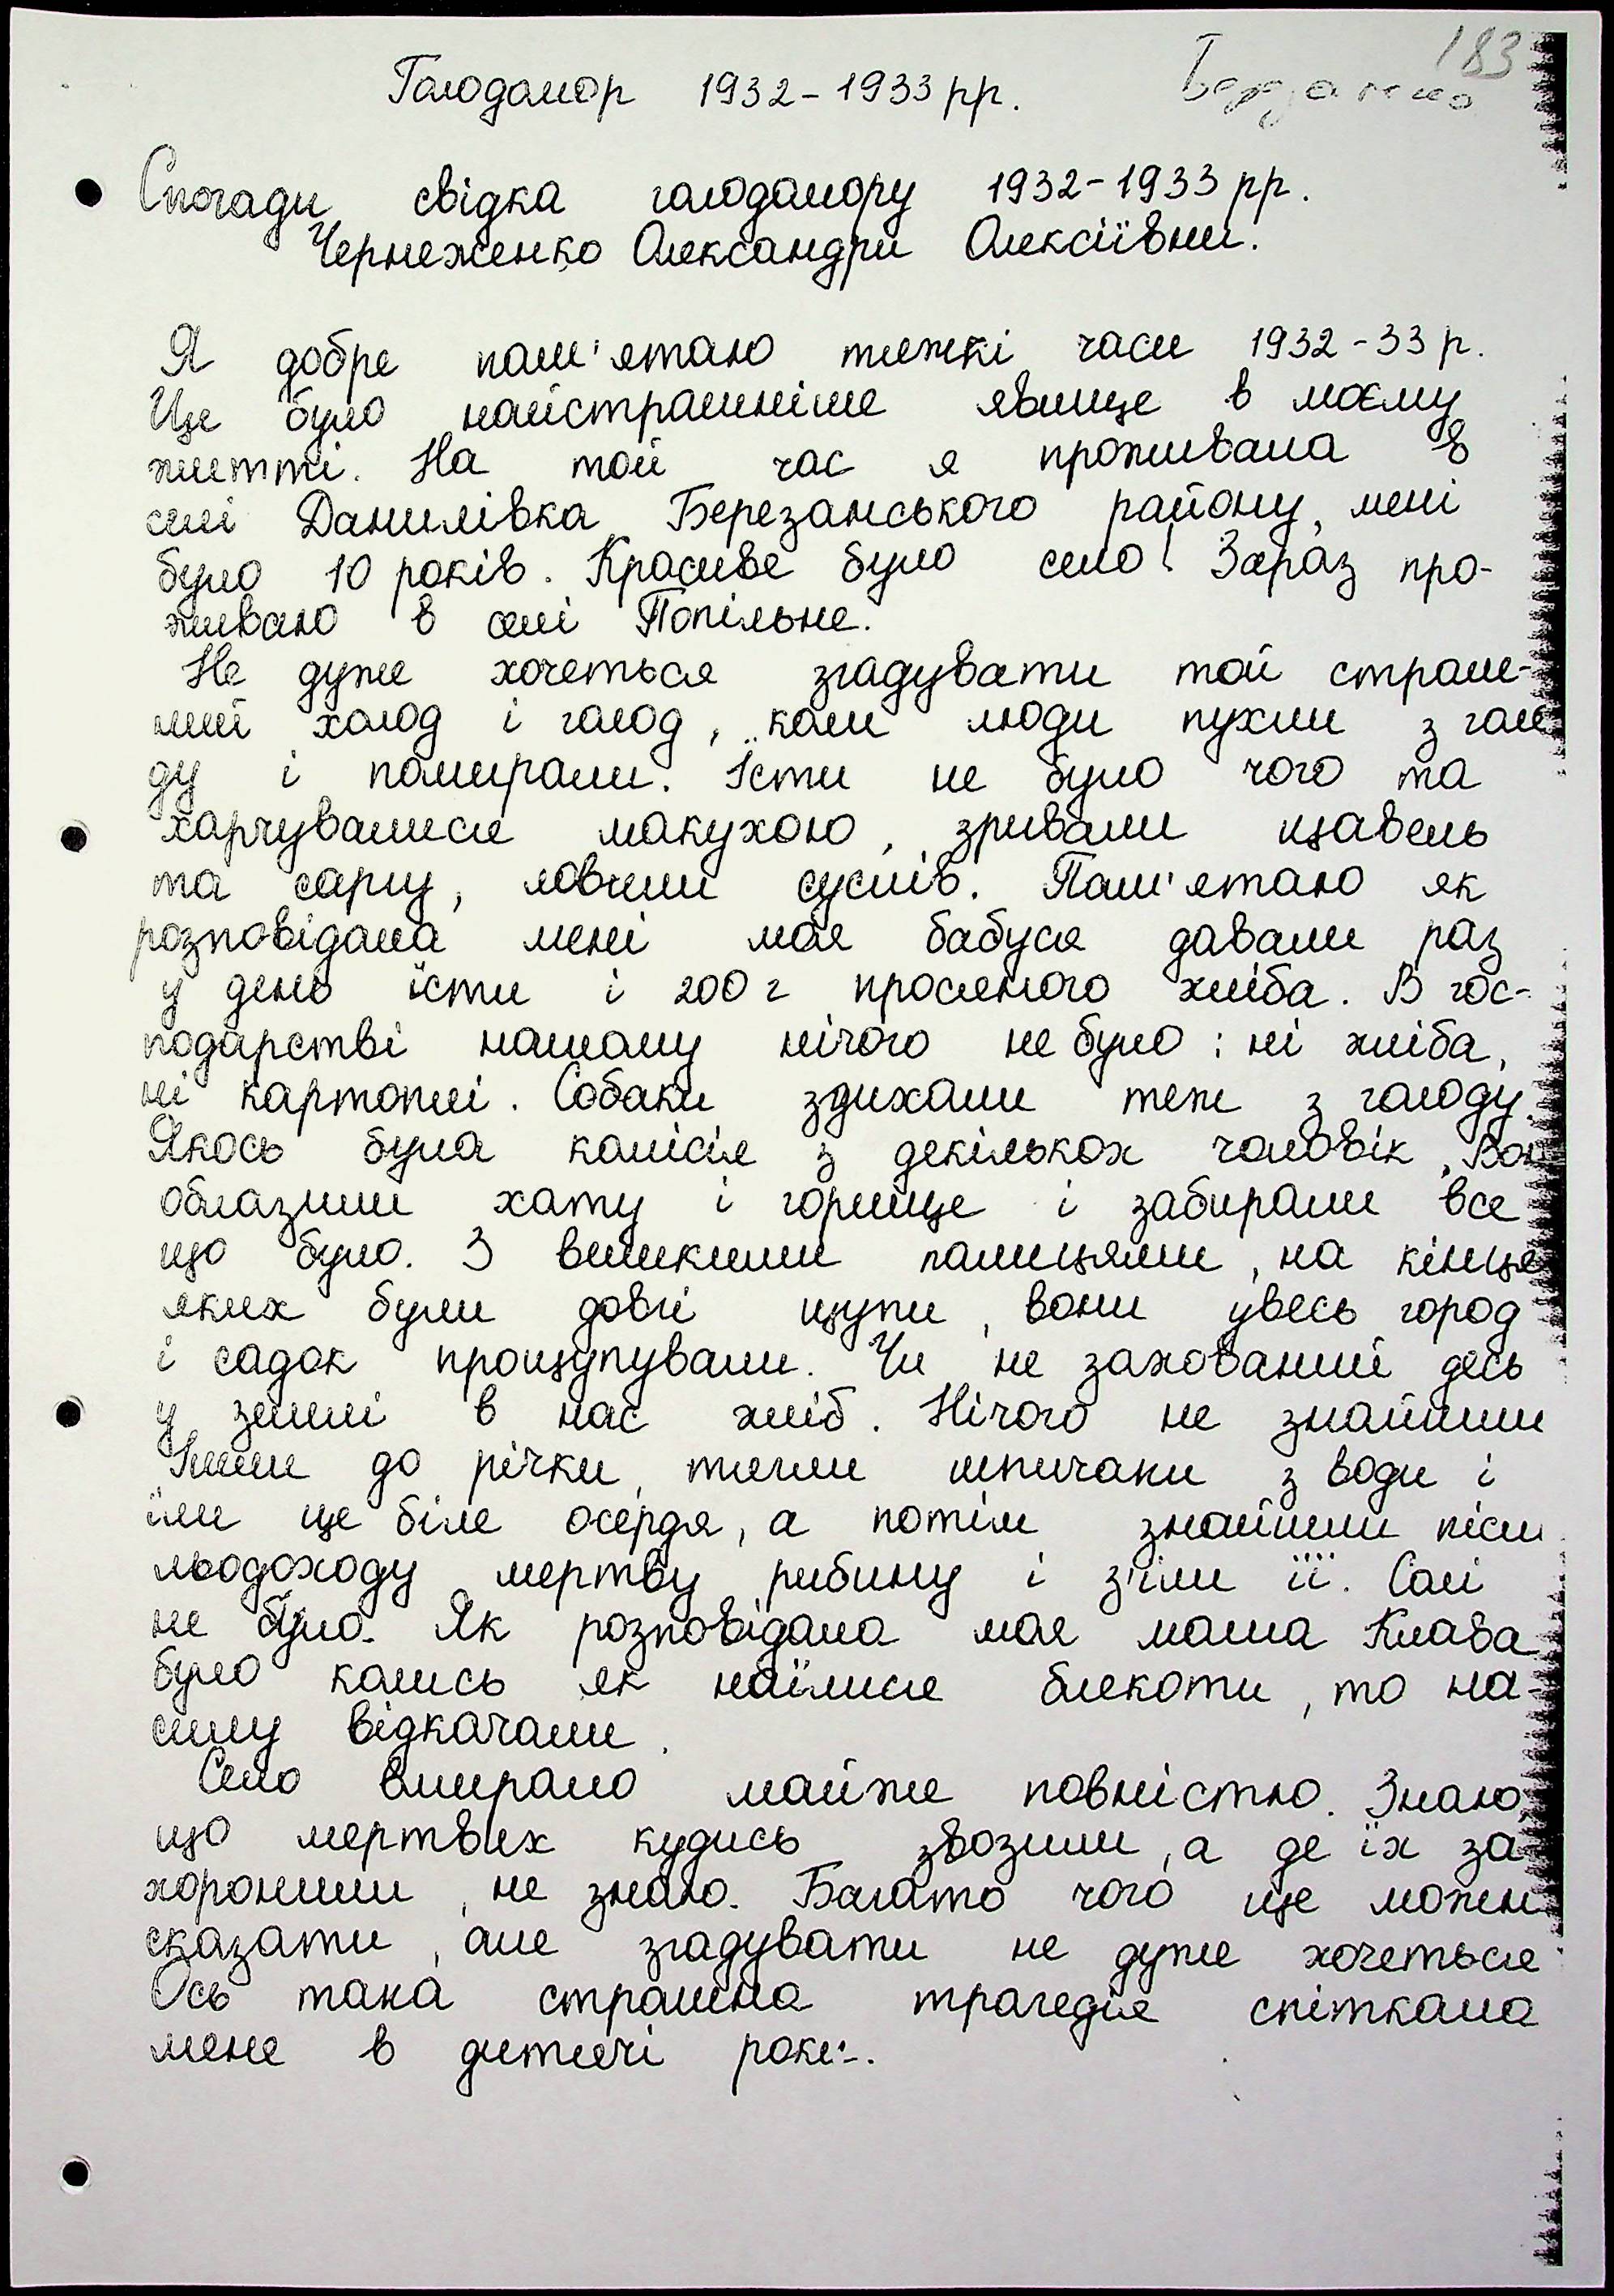 183
Голодомор 1932-1933 рр.
Спогади свідка голодомору 1932-1933 рр.
Чернеженко Олександри Олексіївни.
Я добре пам'ятаю тяжкі часи 1932-33 р.
Це було найстрашніше явище в моєму
житті. На той час я проживала в
селі Данилівка Березанського району, мені
було 10 років. Красиве було село! Зараз про-
живаю в селі Попільне.
Не дуже хочеться згадувати той страш-
ний холод і голод, коли люди пухли з голо
ду і помирали. Їсти не було чого та
харчувалися макухою, зривали щавель
та саргу, ловили сусліів. Пам'ятаю як
розповідала мені моя бабуся давали раз
у день їсти і 200 г просяного хліба. В гос-
подарстві нашому нічого не було: ні хліба,
ні картоплі. Собаки здихали теж з голоду.
Якось була комісія з декількох чоловік, Вон
облазили хату і горище і забирали все
що було. З великими палицями, на кінця
яких були довгі щупи, вони увесь город
і садок прощупували. Чи не захований десь
у землі в нас хліб. Нічого не знайшли
Йшли до річки, тягли шпичаки з води і
їли це біле осердя, а потім знайшли після
льодоходу мертву рибину і з'їли її. Солі
не було. Як розповідала моя мама Клава
було колись як наїлися блекоти, то на-
силу відкачали.
Село вмирало майже повністю. Знаю,
що мертвих кудись звозили, а де їх за
хоронили, не знаю. Багато чого ще можн
сказати, але згадувати не дуже хочеться
Ось така страшна трагедія спіткала
мене в дитячі роки.